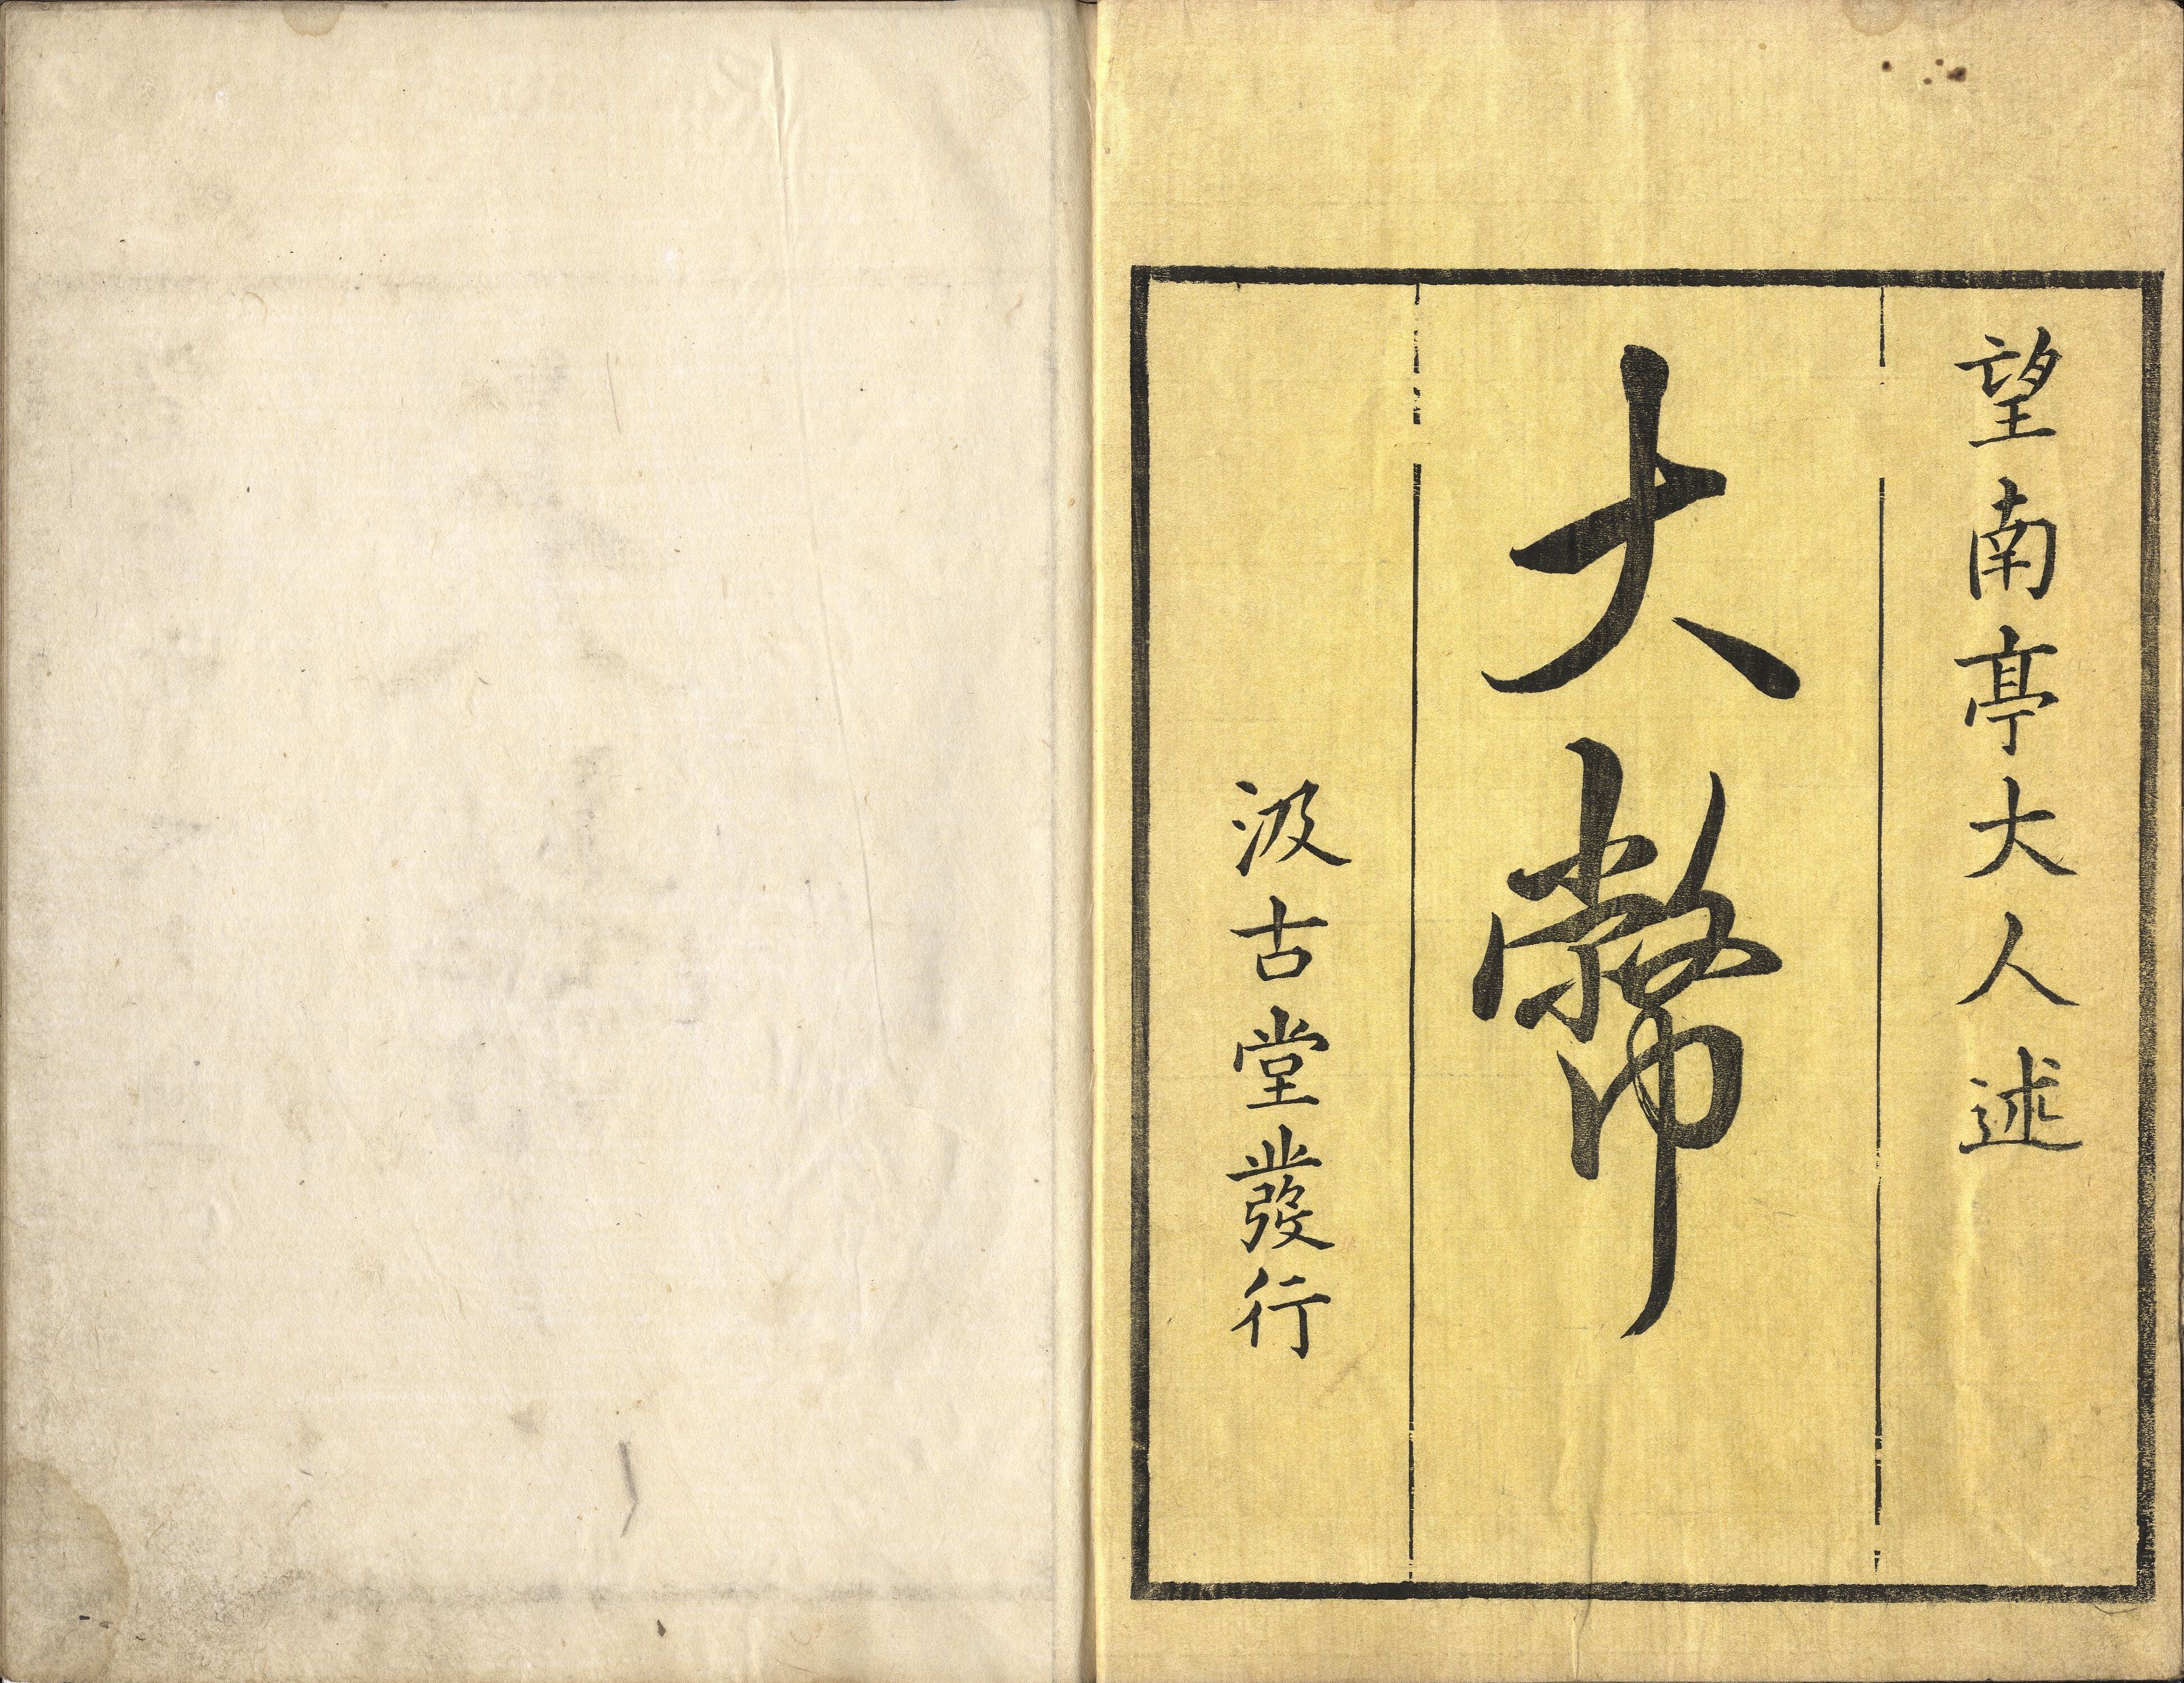 望南亭大人述
大幣
汲古堂發行